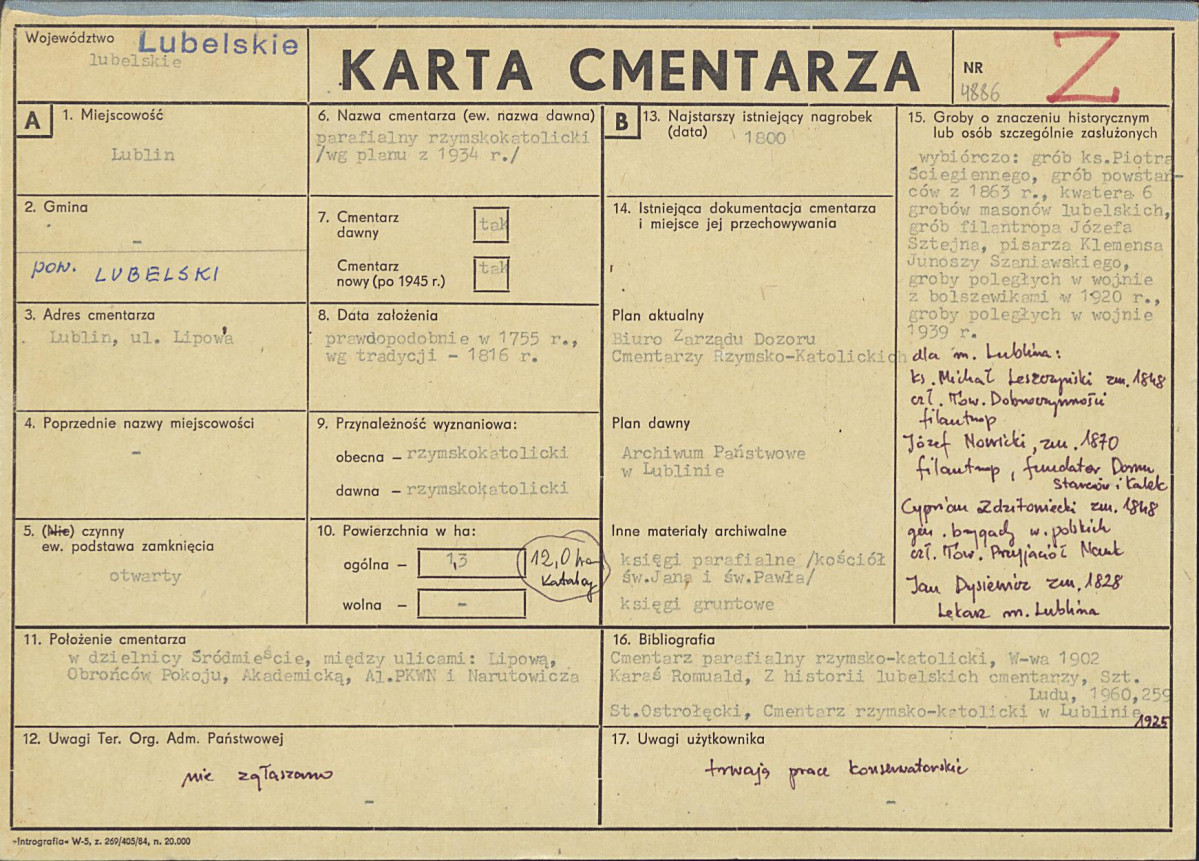 Województwo Lubelskie
lubelskie
KARTA CMENTARZA
NR
4886
Z
A
1. Miejscowość
Lublin
2. Gmina
-
pow. LUBELSKI
3. Adres cmentarza
Lublin, ul. Lipowa
4. Poprzednie nazwy miejscowości
-
5. (Nie) czynny
ew. podstawa zamknięcia
otwarty
6. Nazwa cmentarza (ew. nazwa dawna)
parafialny rzymskokatolicki
/wg planu z 1934 r./
7. Cmentarz
dawny
tak
Cmentarz
nowy (po 1945 r.)
tak
8. Data założenia
prawdopodobnie w 1755 r.,
wg tradycji - 1816 r.
9. Przynależność wyznaniowa:
obecna - rzymskokatolicki
dawna - rzymskokatolicki
10. Powierzchnia w ha:
ogólna - 1,3
12,0 ha
Katalog
wolna - -
B
13. Najstarszy istniejący nagrobek
(data) 1800
14. Istniejąca dokumentacja cmentarza
i miejsce jej przechowywania
Plan aktualny
Biuro Zarządu Dozoru
Cmentarzy Rzymsko-Katolickich
Plan dawny
Archiwum Państwowe
w Lublinie
Inne materiały archiwalne
księgi parafialne /kościół
św.Jana i św.Pawła/
księgi gruntowe
15. Groby o znaczeniu historycznym
lub osób szczególnie zasłużonych
wybiórczo: grób ks.Piotra
Ściegiennego, grób powstań-
ców z 1863 r., kwatera 6
grobów masonów lubelskich,
grób filantropa Józefa
Sztejna, pisarza Klemensa
Junoszy Szaniawskiego,
groby poległych w wojnie
z bolszewikami w 1920 r.,
groby poległych w wojnie
1939 r.
dla m. Lublina:
ks. Michał Leszczyński zm. 1848
czł. Tow. Dobroczynności
filantrop
Józef Nowicki, zm. 1870
filantrop, fundator Domu
Starców i Kalek
Cyprian Zdzitowiecki zm. 1848
gen. brygady w. polskich
czł. Tow. Przyjaciół Nauk
Jan Dysiewicz zm. 1828
Lekarz m. Lublina
11. Położenie cmentarza
w dzielnicy Śródmieście, między ulicami: Lipową,
Obrońców Pokoju, Akademicką, Al.PKWN i Narutowicza
16. Bibliografia
Cmentarz parafialny rzymsko-katolicki, W-wa 1902
Karaś Romuald, Z historii lubelskich cmentarzy, Szt.
Ludu, 1960,259
St.Ostrołęcki, Cmentarz rzymsko-katolicki w Lublinie
1925
12. Uwagi Ter. Org. Adm. Państwowej
nie zgłaszano
-
17. Uwagi użytkownika
trwają prace konserwatorskie
-
»Intrografia« W-5, z. 269/405/84, n. 20.000